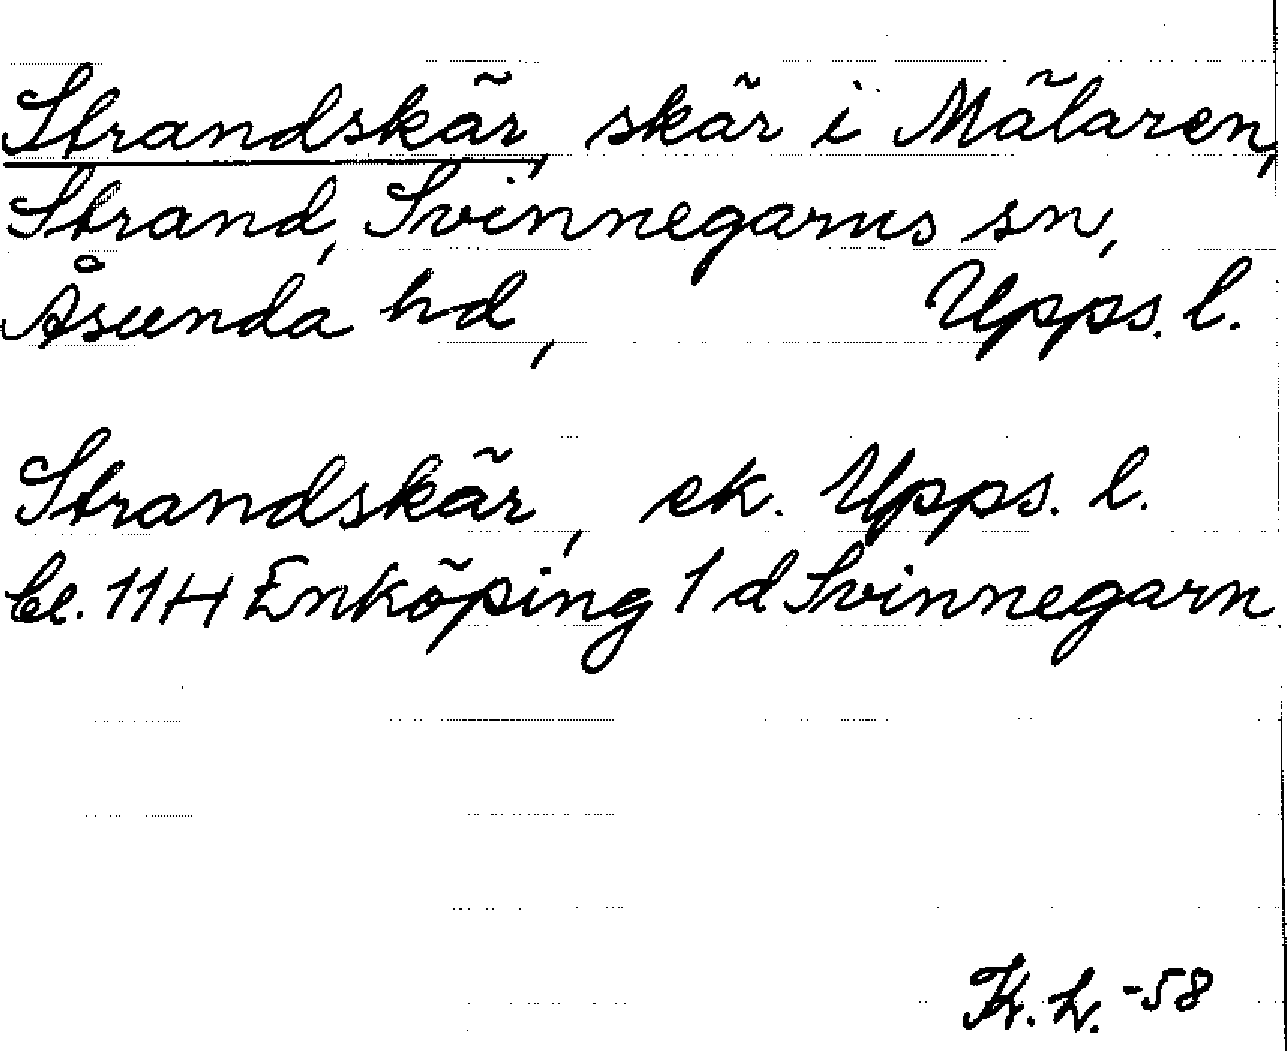 Strandskär, skär i Mälaren,
Strand, Svinnegarns sn,
Åsunda hd, Upps. l.
Strandskär, ek. Upps. l.
bl. 11H Enköping 1 d Svinnegarn
K. L. -58